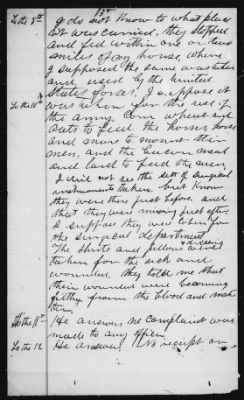 To the 8th I do not know to what place
it was carried, they stopped
and fed within one or two
miles of my house, where
I supposed the same was taken
and used by the United
States forces. I suppose it
To the 10th was taken for the use of
the army, Corn wheat and
oats to feed the horses, horses
and mare to mount their
men, and the bacon meat
and lard to feed the men
I did not see the sett of surgical
instruments taken. but know
they were there just before. and
that they were missing just after
I suppose they were taken for
the surgical department
The shirts and pillows were
taken for the sick and
wounded, they told me that
their wounded were becoming
filthy from the blood and
To the 11th He answers no complaint was
made to any officer
To the 12 He answers No receipt or